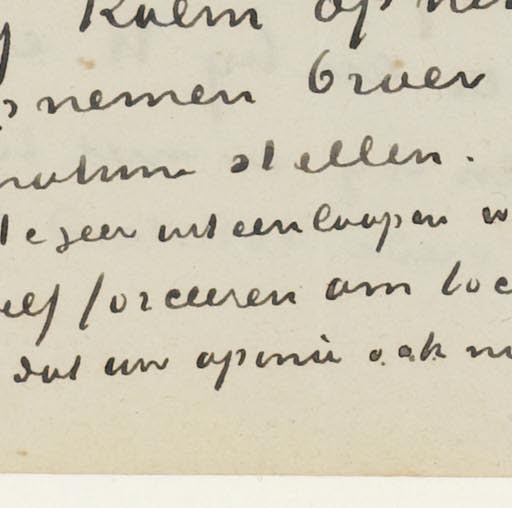 Roem op
nemen broer
stellen.
te zeer uiteenloopen
zelf forceeren om toc
dat uw opinie ook